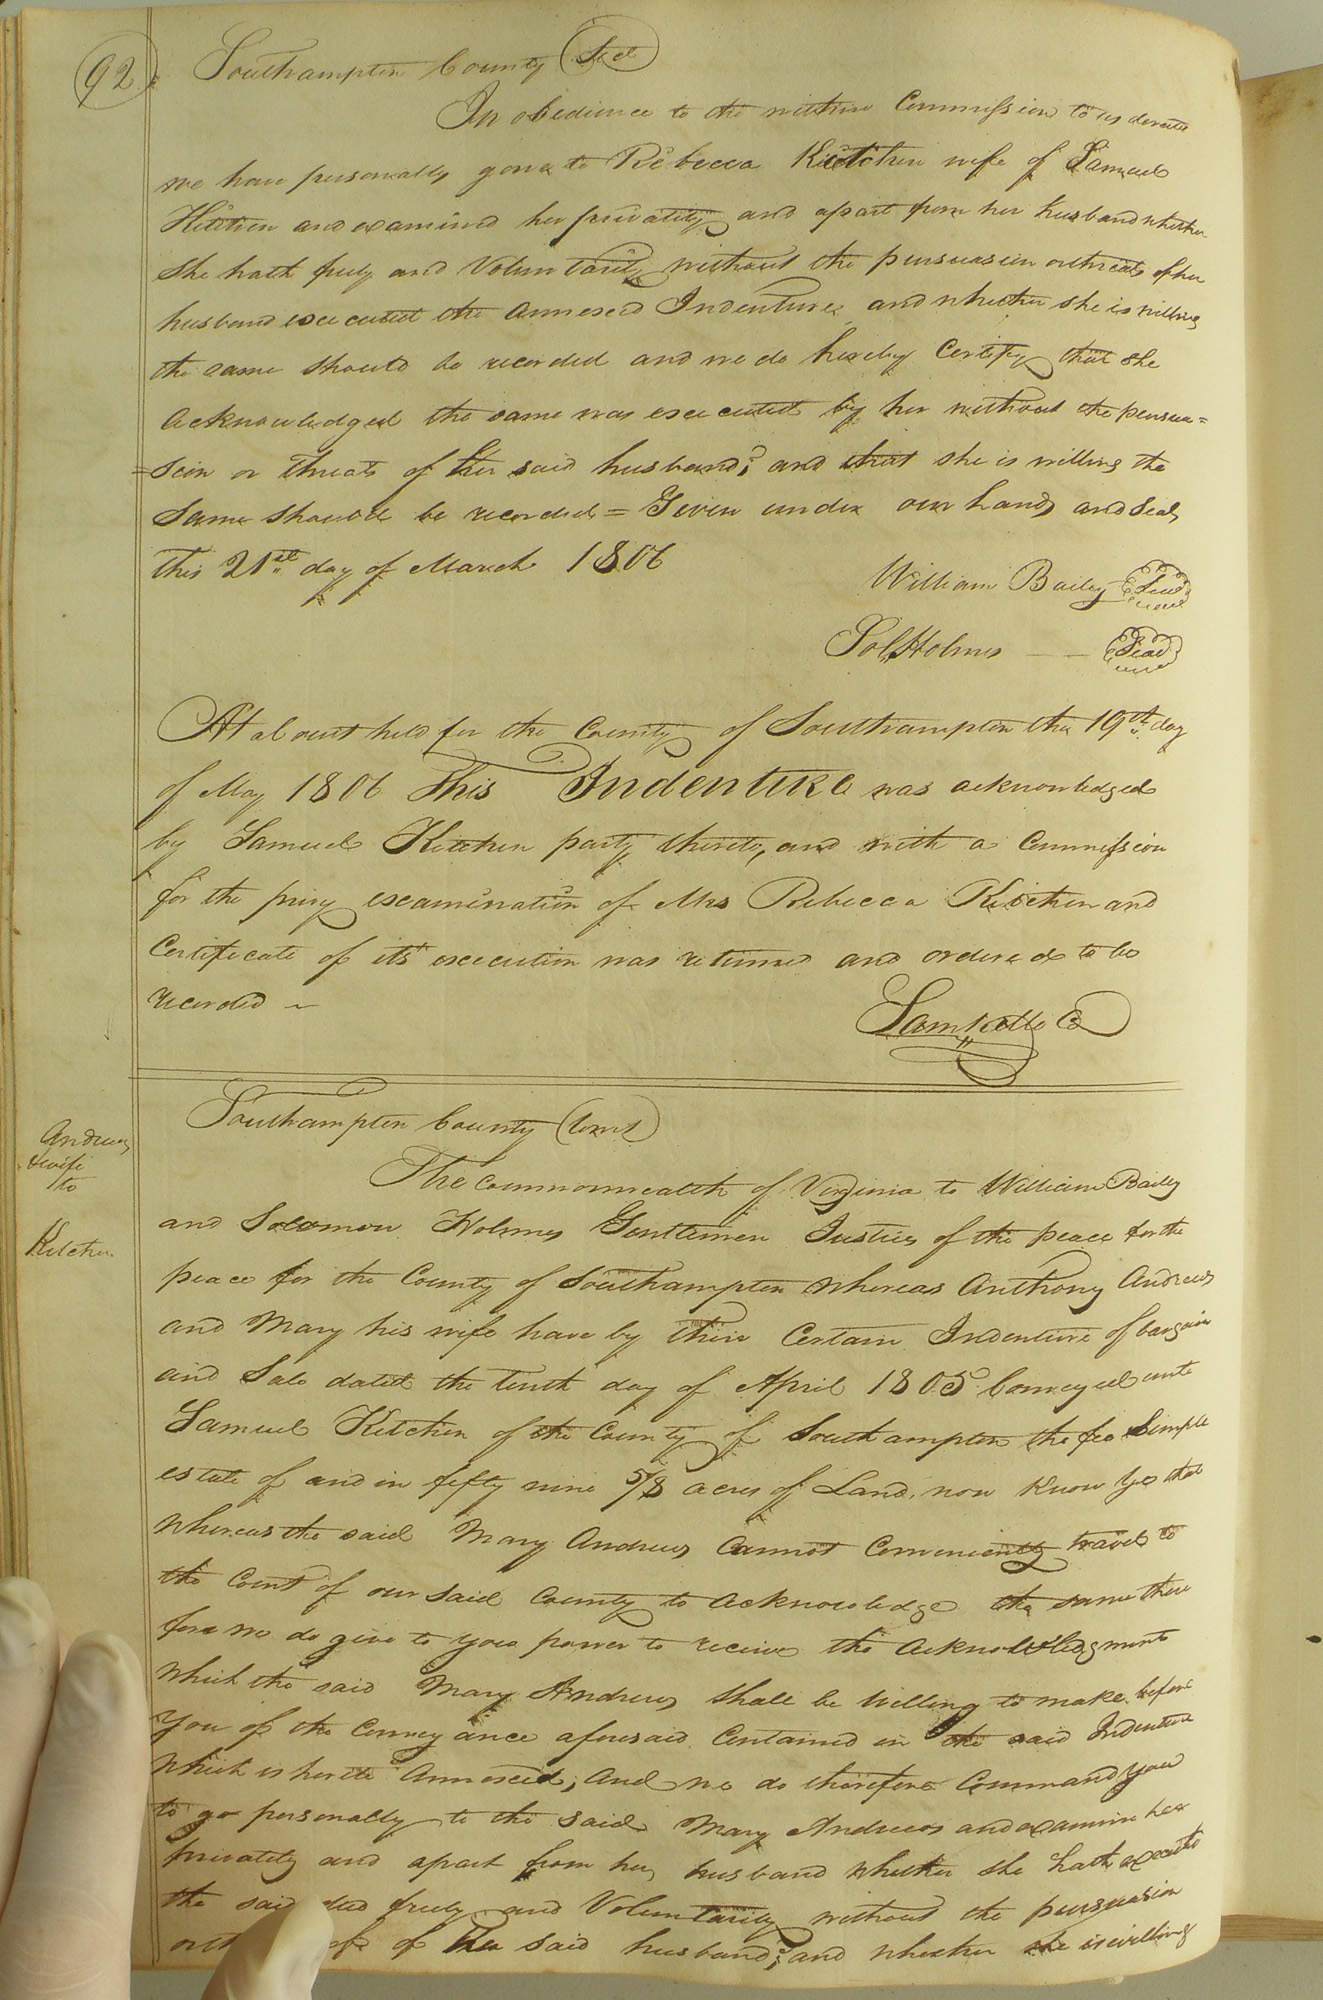 92
Southampton County Sct
In obedience to the within Commission to us directed
we have personally gone to Rebecca Kitchen wife of Samuel
Kitchen and examined her privately and apart from her husband whether
she hath freely and Voluntarily without the persuasion or threats of her
husband executed the annexed Indenture and whether she is willing
the same should be recorded and we do hereby Certify that she
acknowledged the same was executed by her without the persua=
=sion or threats of her said husband; and that she is willing the
same should be recorded = Given under our hands and Seals
this 21st day of March 1806
William Bailey Seal
Sol Holmes — Seal
At a Court held for the County of Southampton the 19th day
of May 1806 This Indenture was acknowledged
by Samuel Kitchen party thereto, and with a Commission
for the privy examination of Mrs Rebecca Kitchen and
Certificate of its execution was returned and ordered to be
recorded —
Sam Kello C
Andrews
& wife
to
Kitchen
Southampton County (towit)
The Commonwealth of Virginia to William Bailey
and Solomon Holmes Gentlemen Justices of the peace for the
peace for the County of Southampton whereas Anthony Andrews
and Mary his wife have by their Certain Indenture of bargain
and Sale dated the tenth day of April 1805 Conveyed unto
Samuel Kitchen of the County of Southampton the fee Simple
estate of and in fifty nine 5/8 acres of Land, now Know Ye that
whereas the said Mary Andrews Cannot Conveniently travel to
the Court of our said County to acknowledge the same there
fore we do give to you power to receive the acknowledgment
which the said Mary Andrews shall be Willing to make before
You of the Conveyance aforesaid Contained in the said Indenture
which is hereto Annexed; And we do therefore Command you
to go personally to the said Mary Andrews and examine her
privately and apart from her husband whether she hath executed
the said deed freely and Voluntarily without the persuasion
of her said husband; and whether she is willing